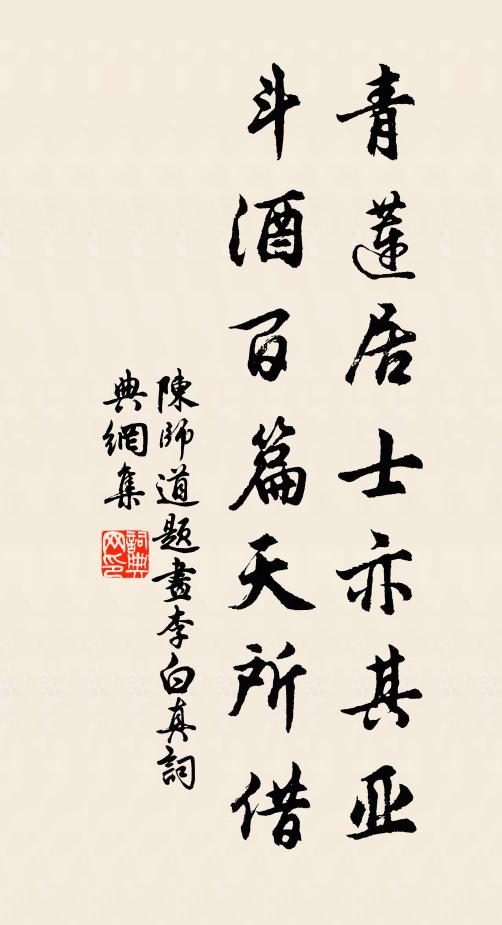 青蓮居士亦其亚
斗酒百篇天所借
陳師道題畫李白真詞
典網集
詞典网印